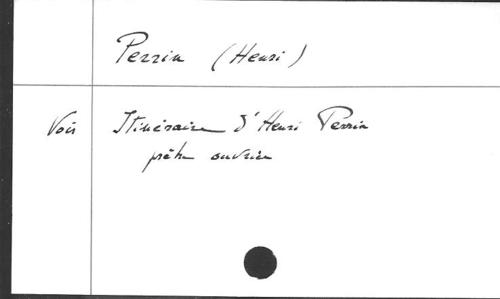 Perrin (Henri)
Voir Itinéraire d'Henri Perrin
prêtre ouvrier